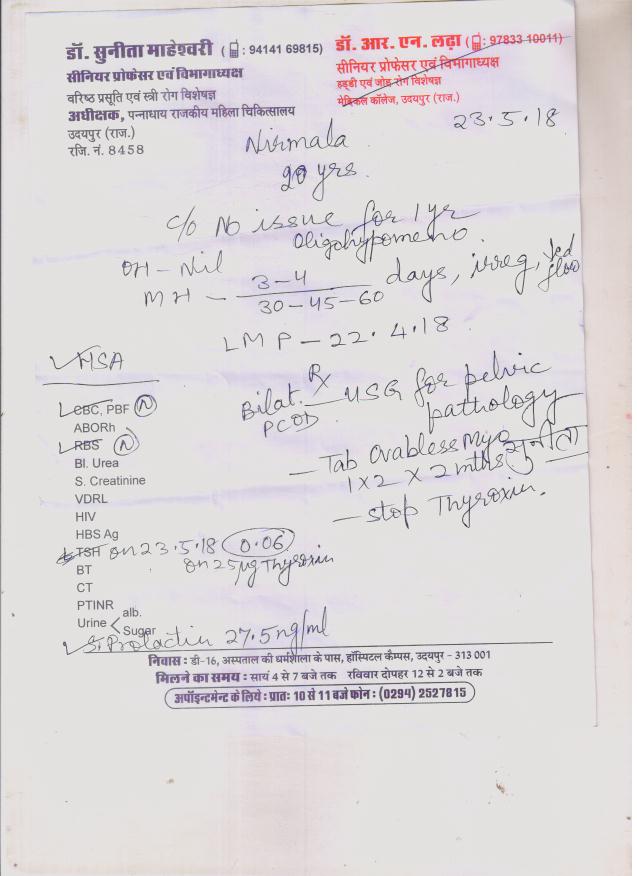 डॉ. सुनीता माहेश्वरी ( : 94141 69815)
सीनियर प्रोफेसर एवं विभागाध्यक्ष
वरिष्ठ प्रसूति एवं स्त्री रोग विशेषज्ञ
अधीक्षक, पन्नाधाय राजकीय महिला चिकित्सालय
उदयपुर (राज.)
रजि. नं. 8458
डॉ. आर. एन. लढ़ा ( : 97833 10011)
सीनियर प्रोफेसर एवं विभागाध्यक्ष
हड्डी एवं जोड़ रोग विशेषज्ञ
मेडिकल कॉलेज, उदयपुर (राज.)
23.5.18
Nirmala
yrs.
c/o No issue for 1 yr
Oligohypomeno.
OH - Nil
MH - 3-4 / 30-45-60 days, irreg, flow
LMP - 22.4.18
HSA
Rx
Bilat. PCOD
— USG for pelvic
pathology
— Tab Ovabless Myo
1 x 2 x 2 mths
सुनीता
— stop Thyroxin.
CBC, PBF (N)
ABORh
RBS (N)
Bl. Urea
S. Creatinine
VDRL
HIV
HBS Ag
TSH on 23.5.18 0.06
on 25 µg Thyroxin
BT
CT
PTINR
Urine < alb.
Sugar
S. Prolactin 27.5 ng/ml
निवास : डी-16, अस्पताल की धर्मशाला के पास, हॉस्पिटल कैम्पस, उदयपुर - 313 001
मिलने का समय : सायं 4 से 7 बजे तक रविवार दोपहर 12 से 2 बजे तक
अपॉइन्टमेन्ट के लिये : प्रातः 10 से 11 बजे फोन : (0294) 2527815